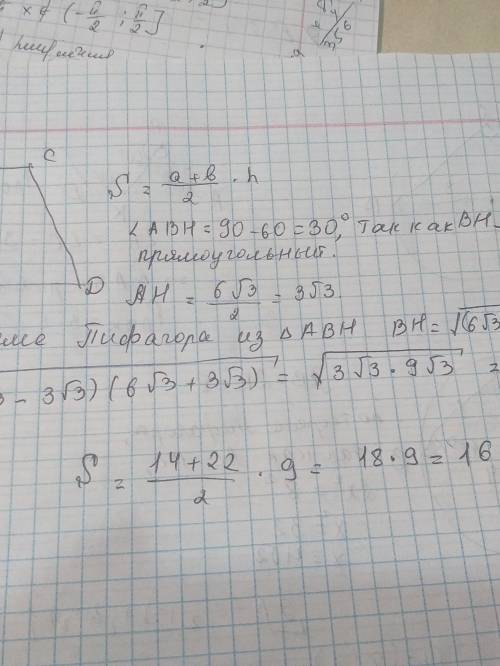 x ∉ (-π/2 ; π/2]
C
S = (a+b)/2 · h
∠ABH = 90-60=30°, так как BH
прямоугольный.
D
AH = 6√3/2 = 3√3.
Пифагора из △ABH BH=√(6√3
- 3√3)(6√3+3√3) = √3√3·9√3 =
S = (14+22)/2 · 9 = 18·9=16